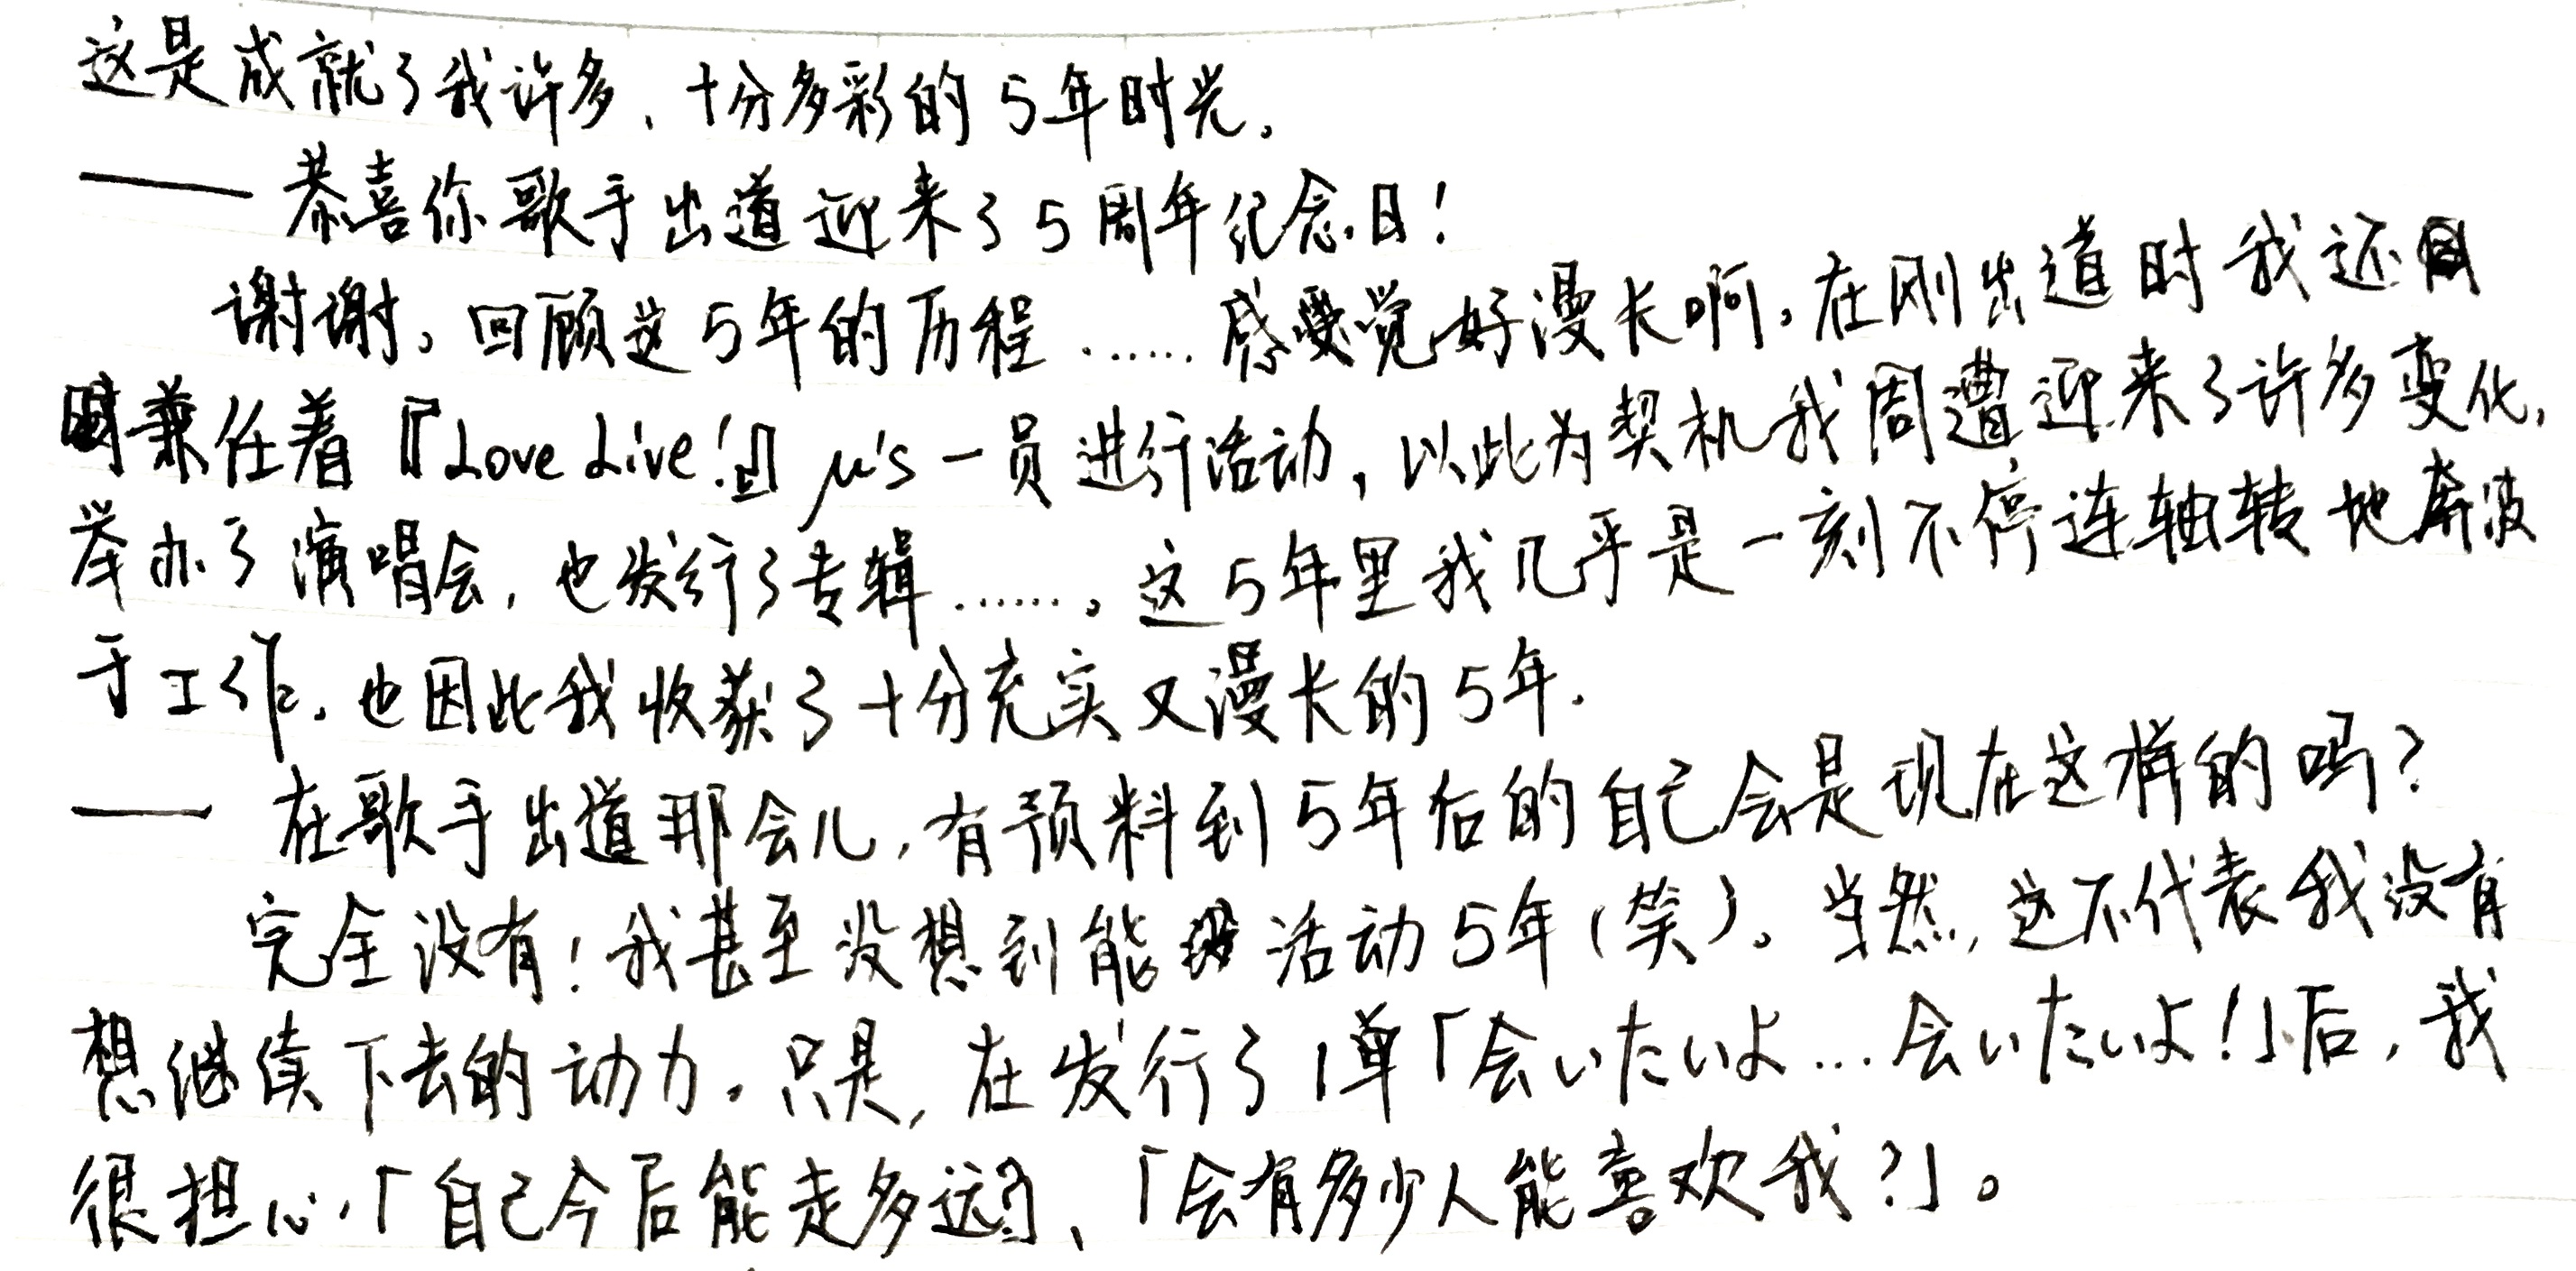 这是成就了我许多、十分多彩的5年时光。
—— 恭喜你歌手出道迎来了5周年纪念日!
谢谢。回顾这5年的历程……感觉好漫长啊。在刚出道时我还
同时兼任着『Love Live!』μ's一员进行活动,以此为契机我周遭迎来了许多变化,
举办了演唱会,也发行了专辑……。这5年里我几乎是一刻不停连轴转地奔波
于工作。也因此我收获了十分充实又漫长的5年.
—— 在歌手出道那会儿,有预料到5年后的自己会是现在这样的吗?
完全没有!我甚至没想到能活动5年(笑)。当然,这不代表我没有
想继续下去的动力。只是,在发行了1单「会いたいよ...会いたいよ!」后,我
很担心,「自己今后能走多远?」、「会有多少人能喜欢我?」。